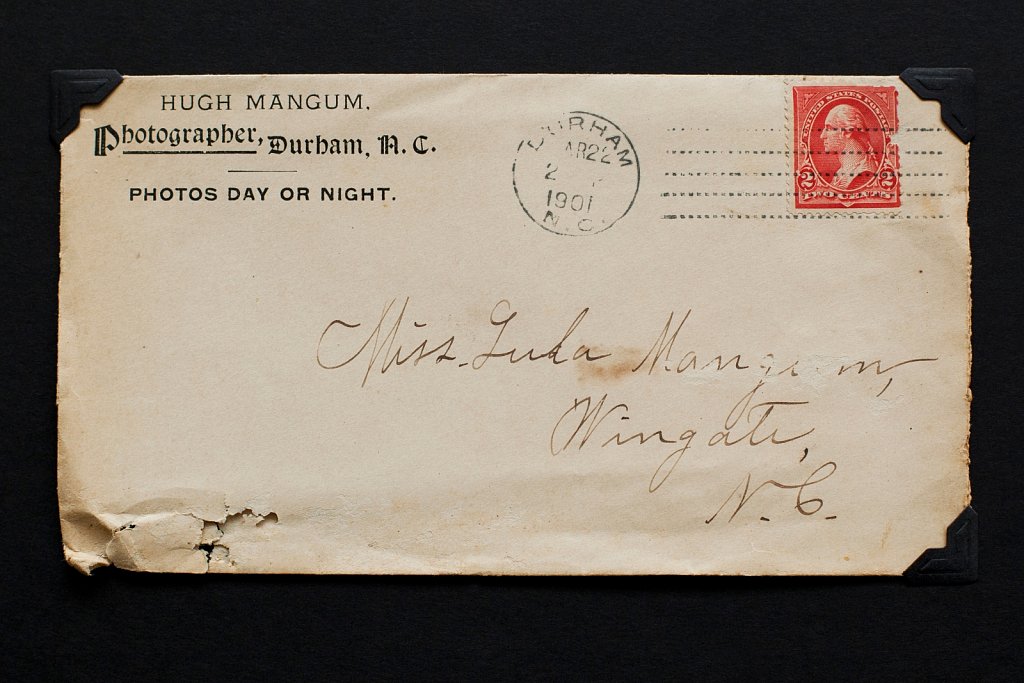 HUGH MANGUM,
Photographer, Durham, N. C.
PHOTOS DAY OR NIGHT.
DURHAM
AR22
2
1901
N.C.
UNITED STATES POSTAGE
2 2
TWO CENTS
Miss. Lula Mangum,
Wingate,
N. C.